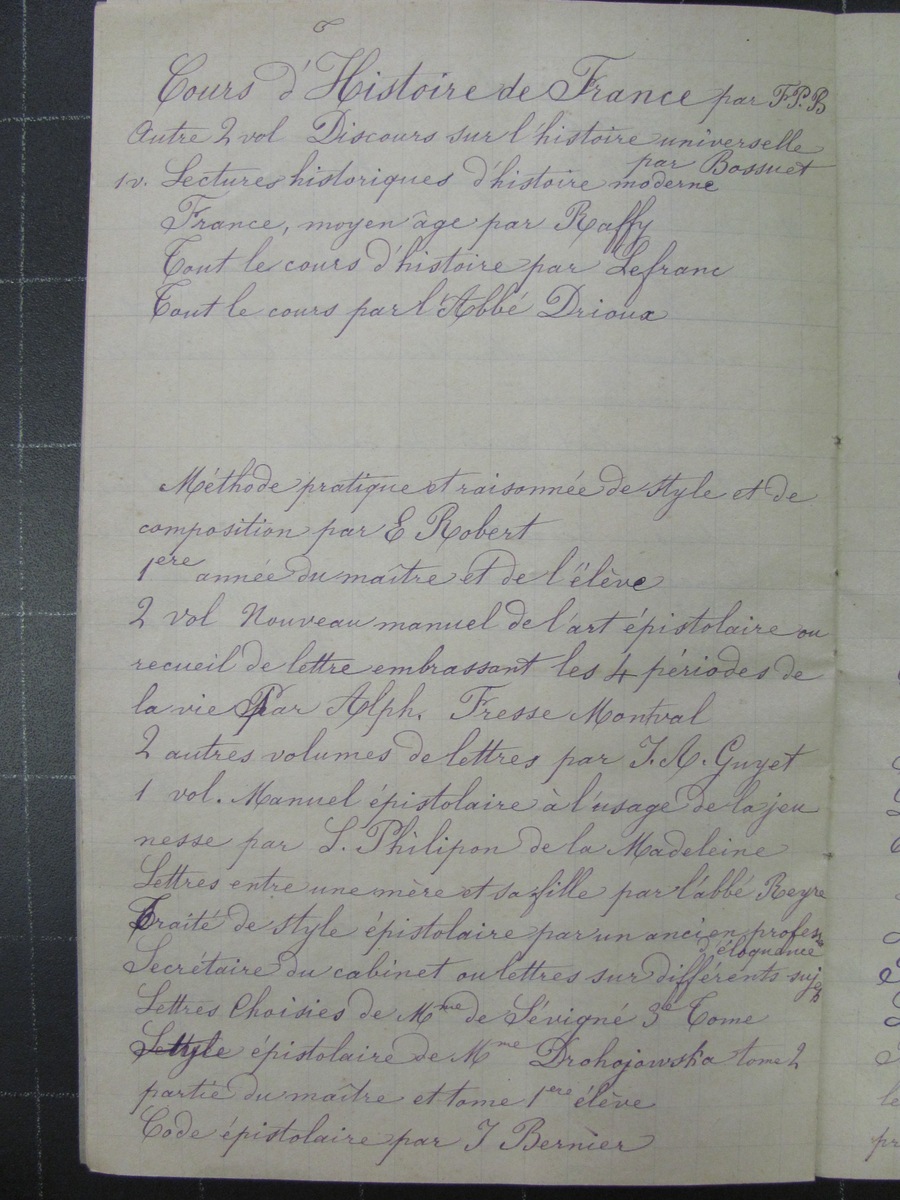 Cours d'Histoire de France par F.P.B
Autre 2 vol Discours sur l'histoire universelle
par Bossuet
1v. Lectures historiques d'histoire moderne
France, moyen âge par Raffy
Tout le cours d'histoire par Lefranc
Tout le cours par l'Abbé Drioux
Méthode pratique et raisonnée de style et de
composition par E Robert
1ere année du maître et de l'élève
2 vol Nouveau manuel de l'art épistolaire ou
recueil de lettre embrassant les 4 périodes de
la vie Par Alph. Fresse Montval
2 autres volumes de lettres par J. A. Guyet
1 vol. Manuel épistolaire à l'usage de la jeu
nesse par L. Philipon de la Madeleine
Lettres entre une mère et sa fille par l'abbé Reyre
Traité de style épistolaire par un ancien profes
d'éloquence
Secrétaire du cabinet ou lettres sur différents sujets
Lettres Choisies de Mme de Sévigné 3e Tome
Style épistolaire de Mme Drohojowska tome 2
partie du maître et tome 1ere élève
Code épistolaire par J Bernier